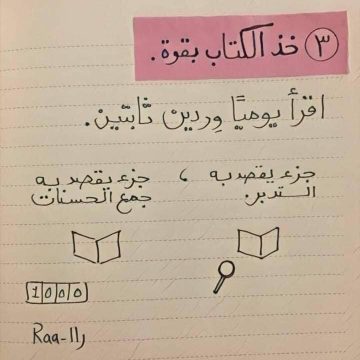 ٣ خذ الكتاب بقوة.
اقرأ يوميًا وِردين ثابتين.
جزء يقصد به التدبر. ، جزء يقصد به جمع الحسنات
1000
Raa-رااا